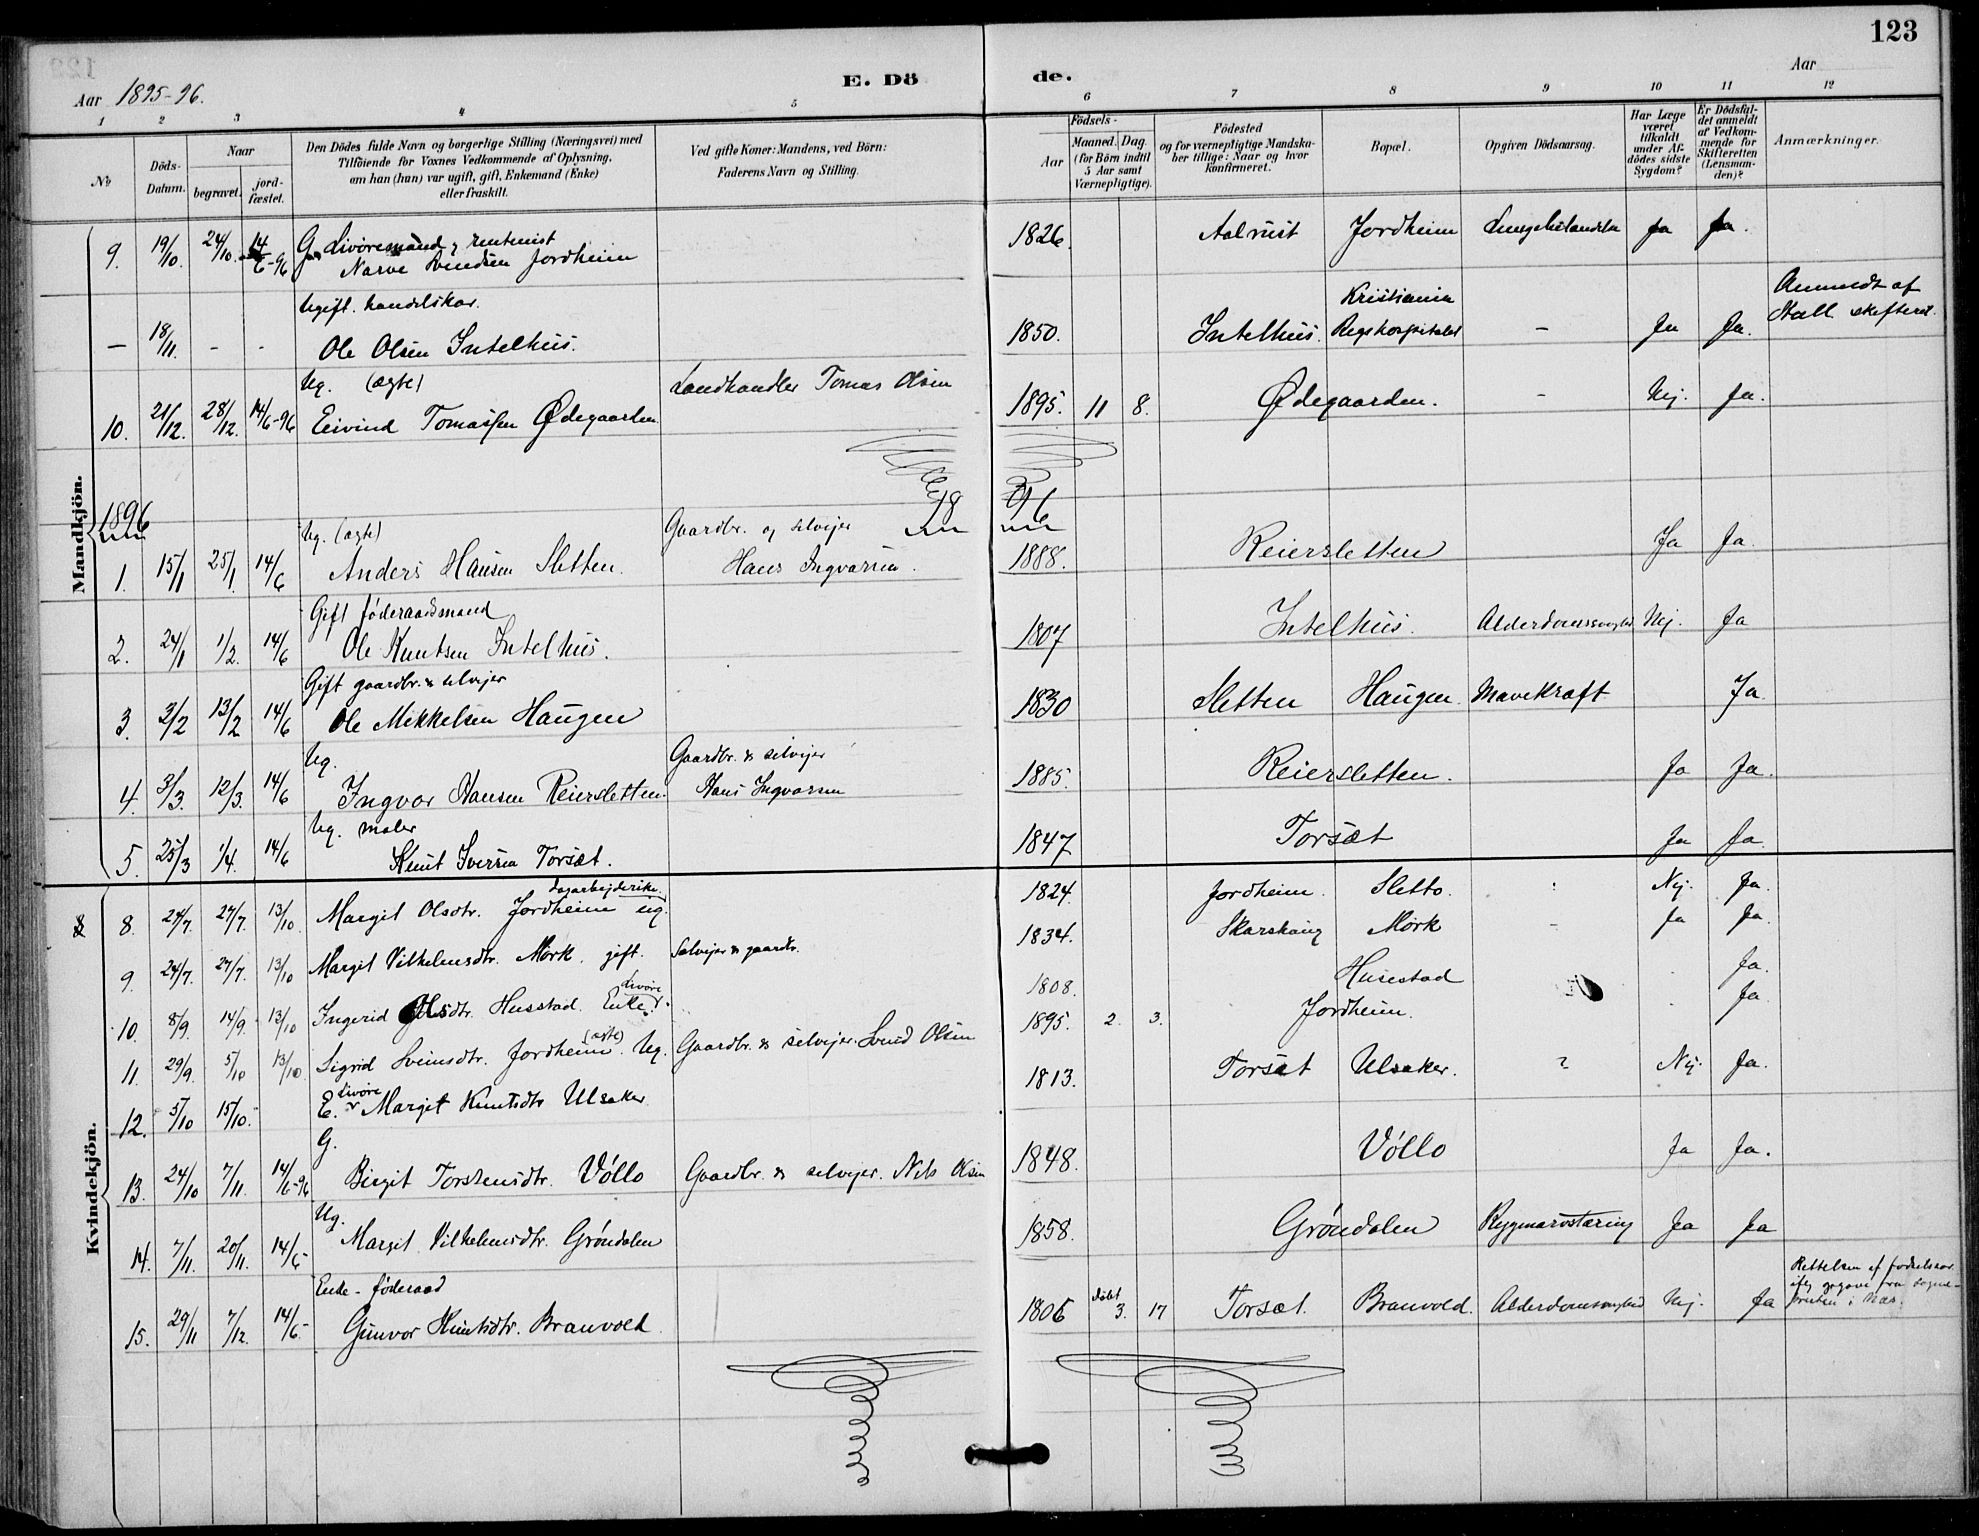 123
Aar 1895-96.
E. Dö de.
Aar
1 2 3 4 5 6 7 8 9 10 11 12
No
Döds-Datum.
Naar
begravet.
jord-fæstet.
Den Dödes fulde Navn og borgerlige Stilling (Næringsvei) med
Tilföiende for Voxnes Vedkommende af Oplysning,
om han (hun) var ugift, gift, Enkemand (Enke)
eller fraskilt.
Ved gifte Koner: Mandens, ved Börn:
Faderens Navn og Stilling.
Födsels-
Aar
Maaned. Dag.
(for Börn indtil
5 Aar samt
Værnepligtige).
Födested
og for værnepligtige Mandska-
ber tillige: Naar og hvor
konfirmeret.
Bopæl.
Opgiven Dödsaarsag.
Har Læge
været
tilkaldt
under Af-
dödes sidste
Sygdom?
Er Dödsfal-
det anmeldt
af Vedkom-
mende for
Skifteretten
(Lensman-
den)?
Anmærkninger.
Mandkjön.
G. Livöremand & rentenist
9. 19/10. 24/10. 14/6-96 Narve Svendsen Jordheim 1826. Aalrust Jordheim Ja Ja.
Ugift. handelskar. Kristiania Anmeldt af
— 18/11. - - Ole Olsen Intelhus. 1850. Intelhus. Rigshospitalet - Ja Ja. Hall. skifteret.
Ug. (ægte) Landhandler Tomas Olsen
10. 21/12. 28/12. 14/6-96 Eivind Tomassen Ødegaarden 1895. 11 8. Ødegaarden. - Nej. Ja.
1896 18 96
Ug. (ægte) Gaardbr. og selvejer
1. 15/1 25/1. 14/6 Anders Hansen Sletten. Hans Ingvarsen. 1888. Reiersletten Ja Ja.
Gift föderaadsmand
2. 24/1 1/2. 14/6 Ole Knutsen Intelhus. 1807 Intelhus. Alderdomssvaghed Nej. Ja
Gift gaardbr. & selvejer
3. 3/2 13/2 14/6 Ole Mikkelsen Haugen 1830 Sletten Haugen. Mavekræft Ja.
Ug. Gaardbr. & selvejer
4. 3/3. 12/3. 14/6 Ingvar Hansen Reiersletten. Hans Ingvarsen 1885. Reiersletten. Ja Ja.
Ug. maler
5. 25/3 1/4. 14/6 Knut Iversen Torsæt. 1847 Torsæt Ja Ja.
Kvindekjön.
dagarbejderske.
8. 24/7. 27/7. 13/10. Margit Olsdtr. Jordheim ug. 1824. Jordheim. Sletto. Nej. Ja.
9. 24/7. 27/7. 13/10 Margit Vilhelmsdtr. Mörk. gift. Selvejer & gaardbr. 1834. Skarshaug Mörk - Ja Ja.
Livöre
10. 8/9. 14/9. 13/10 Ingerid Olsdtr. Husstad. Enke. 1808. Husestad Ja.
(ægte)
11. 29/9. 5/10 13/10. Sigrid Svensdtr. Jordheim. Ug. Gaardbr. & selvejer. Svend Olsen 1895. 2. 3. Jordheim. Ja.
Livöre
12. 5/10 15/10. E. Margit Knutsdtr Ulsaker 1813. Torsæt Ulsaker. ? Nej. Ja.
G.
13. 24/10 7/11. 14/6-96 Birgit Torstensdtr. Völlo Gaardbr. & selvejer. Nils Olsen 1848. Völlo Ja Ja.
Ug.
14. 7/11. 20/11. 14/6- Margit Vilhelmsdtr. Gröndalen 1858. Gröndalen Rygmarvstæring Ja Ja
Enke - föderaad Rettelsen af fødselsaar
15. 29/11 7/12. 14/6- Gunvor Knutsdtr. Branvold 1806 Döbt 3. 17 Torsæt. Branvold. Alderdomssvaghed Nej. Ja fra sogne-
presten i Næs.